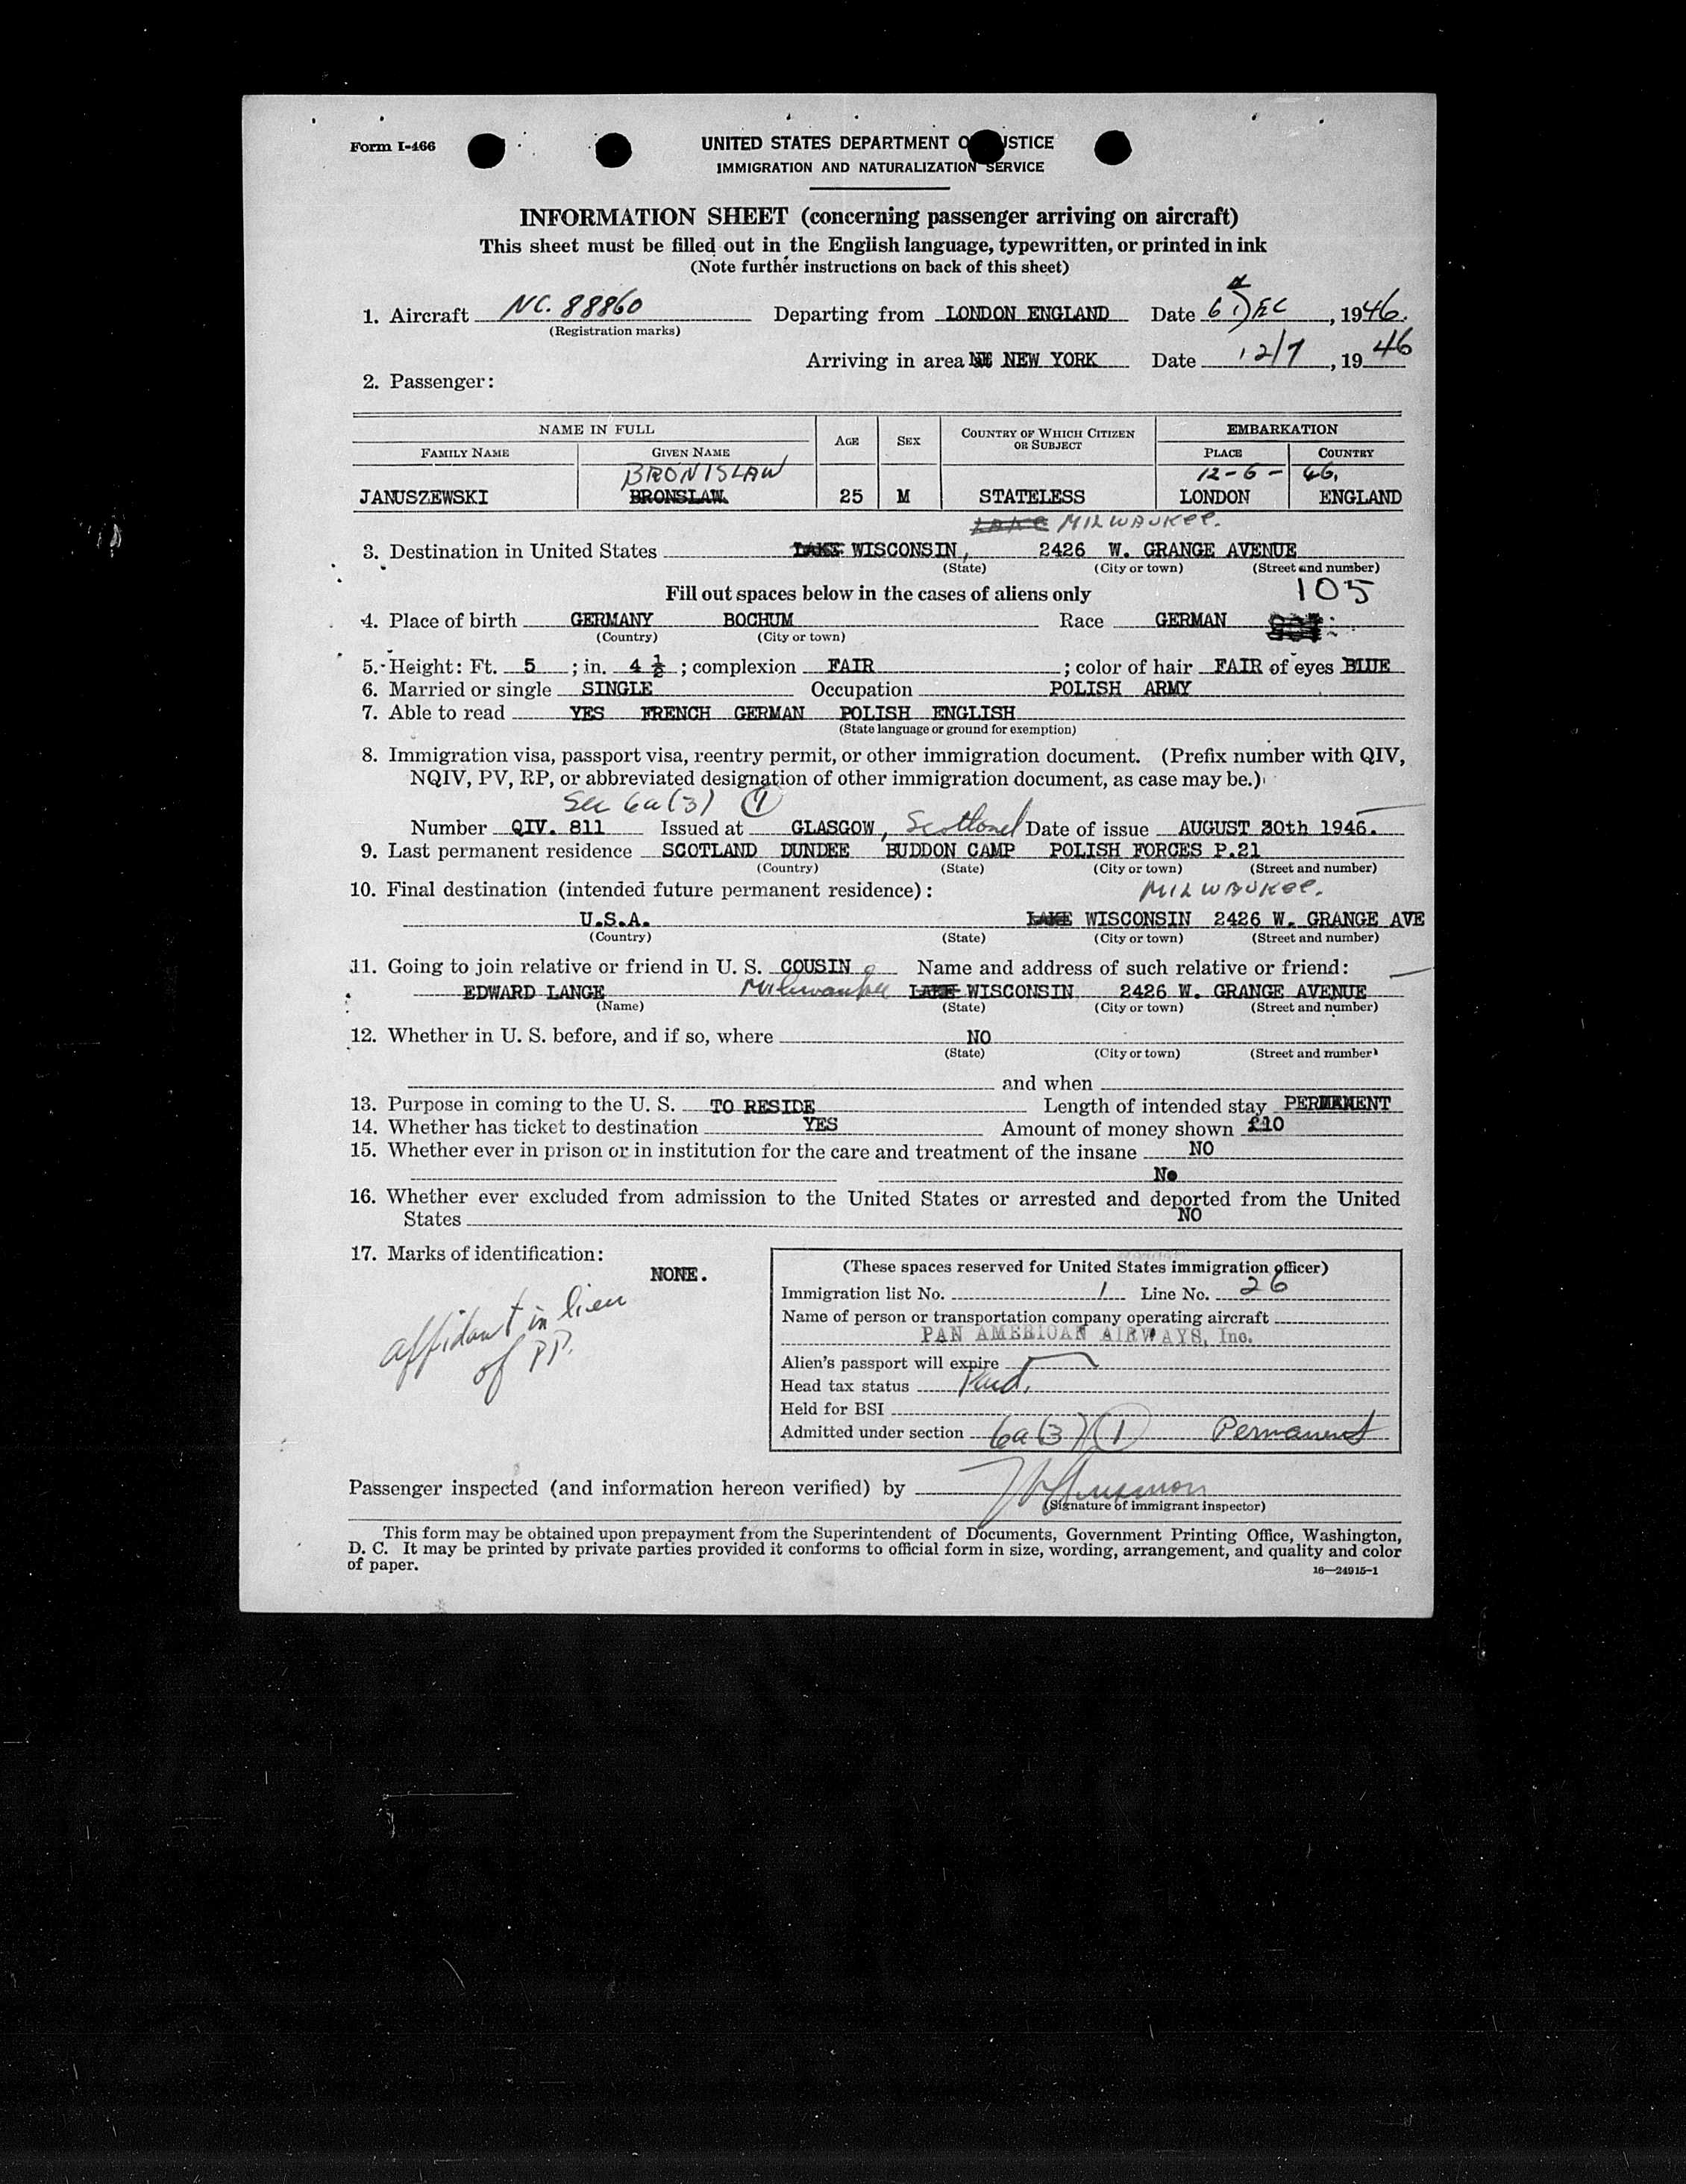 Form I-466
UNITED STATES DEPARTMENT O STICE
IMMIGRATION AND NATURALIZATION SERVICE
INFORMATION SHEET (concerning passenger arriving on aircraft)
This sheet must be filled out in the English language, typewritten, or printed in ink
(Note further instructions on back of this sheet)
1. Aircraft NC. 88860 Departing from LONDON ENGLAND Date 6 DEC, 1946.
(Registration marks)
Arriving in area NEW YORK Date 12/7, 1946
2. Passenger:
NAME IN FULL AGE SEX COUNTRY OF WHICH CITIZEN OR SUBJECT EMBARKATION
FAMILY NAME GIVEN NAME PLACE COUNTRY
BRONISLAW 12-6-46.
JANUSZEWSKI BRONSLAW. 25 M STATELESS LONDON ENGLAND
LAKE MILWAUKEE.
3. Destination in United States LAKE WISCONSIN, 2426 W. GRANGE AVENUE
(State) (City or town) (Street and number)
Fill out spaces below in the cases of aliens only 105
4. Place of birth GERMANY BOCHUM Race GERMAN
(Country) (City or town)
5. Height: Ft. 5; in. 4 ½; complexion FAIR; color of hair FAIR of eyes BLUE
6. Married or single SINGLE Occupation POLISH ARMY
7. Able to read YES FRENCH GERMAN POLISH ENGLISH
(State language or ground for exemption)
8. Immigration visa, passport visa, reentry permit, or other immigration document. (Prefix number with QIV,
NQIV, PV, RP, or abbreviated designation of other immigration document, as case may be.)
Sec 6a(3) (1)
Number QIV. 811 Issued at GLASGOW, Scotland Date of issue AUGUST 30th 1946.
9. Last permanent residence SCOTLAND DUNDEE BUDDON CAMP POLISH FORCES P.21
(Country) (State) (City or town) (Street and number)
10. Final destination (intended future permanent residence): MILWAUKEE.
U.S.A. LAKE WISCONSIN 2426 W. GRANGE AVE
(Country) (State) (City or town) (Street and number)
11. Going to join relative or friend in U. S. COUSIN Name and address of such relative or friend:
EDWARD LANGE Milwaukee LAKE WISCONSIN 2426 W. GRANGE AVENUE
(Name) (State) (City or town) (Street and number)
12. Whether in U. S. before, and if so, where NO
(State) (City or town) (Street and number)
and when
13. Purpose in coming to the U. S. TO RESIDE Length of intended stay PERMANENT
14. Whether has ticket to destination YES Amount of money shown £10
15. Whether ever in prison or in institution for the care and treatment of the insane NO
No
16. Whether ever excluded from admission to the United States or arrested and deported from the United
States NO
17. Marks of identification:
NONE.
affidavit in lieu
of PP.
(These spaces reserved for United States immigration officer)
Immigration list No. 1 Line No. 26
Name of person or transportation company operating aircraft
PAN AMERICAN AIRWAYS, Inc.
Alien's passport will expire
Head tax status Paid.
Held for BSI
Admitted under section 6a(3)(1) Permanent
Passenger inspected (and information hereon verified) by
(Signature of immigrant inspector)
This form may be obtained upon prepayment from the Superintendent of Documents, Government Printing Office, Washington,
D. C. It may be printed by private parties provided it conforms to official form in size, wording, arrangement, and quality and color
of paper.
16—24915-1